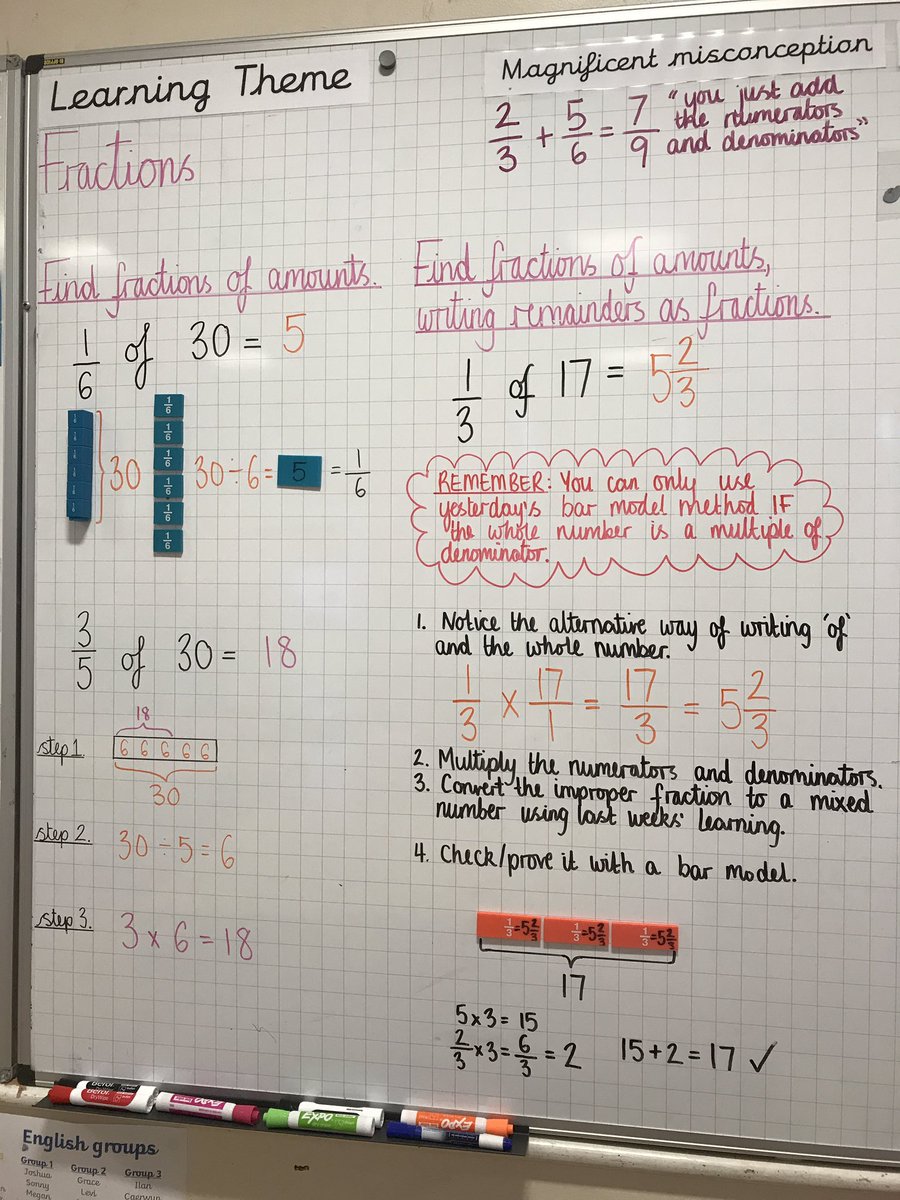 Learning Theme
Fractions
Find fractions of amounts.
1/6 of 30 = 5
1/6
1/6
1/6
1/6
1/6
1/6
30
30÷6= 5 = 1/6
3/5 of 30 = 18
18
step 1. 6 6 6 6 6
30
step 2. 30÷5=6
step 3. 3×6=18
Magnificent misconception
2/3 + 5/6 = 7/9 "you just add
the numerators
and denominators"
Find fractions of amounts,
writing remainders as fractions.
1/3 of 17 = 5 2/3
REMEMBER: You can only use
yesterday's bar model method IF
the whole number is a multiple of
denominator.
1. Notice the alternative way of writing 'of'
and the whole number.
1/3 × 17/1 = 17/3 = 5 2/3
2. Multiply the numerators and denominators.
3. Convert the improper fraction to a mixed
number using last weeks' learning.
4. Check/prove it with a bar model.
1/3=5 2/3 1/3=5 2/3 1/3=5 2/3
17
5×3=15
2/3×3=6/3=2 15+2=17 ✓
Berol
Berol
EXPO
EXPO
EXPO
English groups
Group 1 Group 2 Group 3
Joshua Grace Ilan
Sonny Levi Caerwyn
Megan